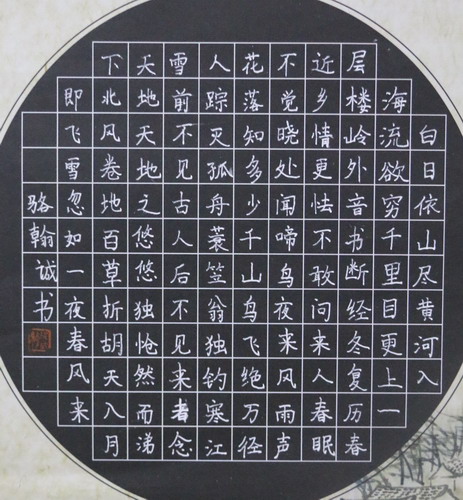 白日依山尽黄河入
海流欲穷千里目更上一
层楼岭外音书断经冬复历春
近乡情更怯不敢问来人春眠
不觉晓处闻啼鸟夜来风雨声
花落知多少千山鸟飞绝万径
人踪灭孤舟蓑笠翁独钓寒江
雪前不见古人后不见来者念
天地天地之悠悠独怆然而涕
下北风卷地百草折胡天八月
即飞雪忽如一夜春风来
骆翰诚书